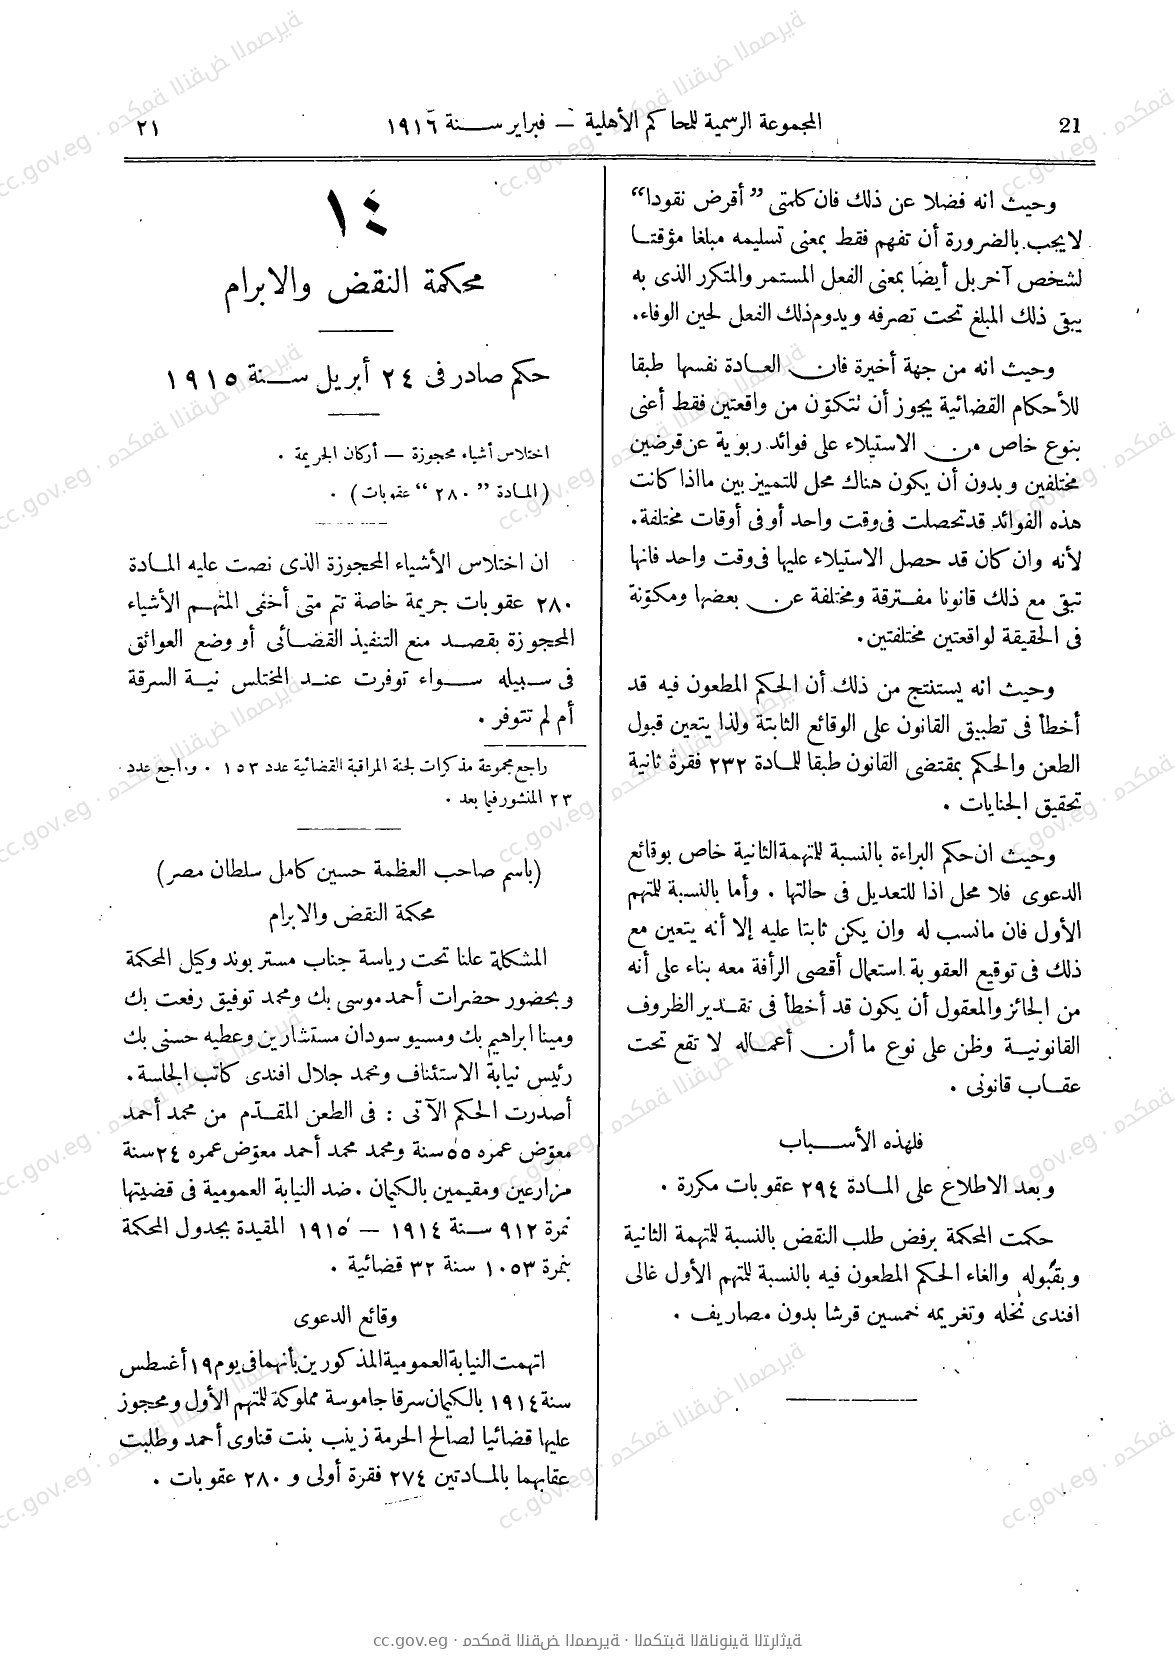 21
المجموعة الرسمية للمحاكم الأهلية — فبراير سنة ١٩١٦
٢١
وحيث انه فضلا عن ذلك فان كلمتى ” أقرض نقودا “
لا يجب بالضرورة أن تفهم فقط بمعنى تسليمه مبلغا مؤقتا
لشخص آخر بل أيضا بمعنى الفعل المستمر والمتكرر الذى به
يبقى ذلك المبلغ تحت تصرفه ويدوم ذلك الفعل لحين الوفاء.
وحيث انه من جهة أخيرة فان العادة نفسها طبقا
للأحكام القضائية يجوز أن تتكوّن من واقعتين فقط أعنى
بنوع خاص من الاستيلاء على فوائد ربوية عن قرضين
مختلفين وبدون أن يكون هناك محل للتمييز بين ما اذا كانت
هذه الفوائد قد تحصلت فى وقت واحد أو فى أوقات مختلفة.
لأنه وان كان قد حصل الاستيلاء عليها فى وقت واحد فانها
تبقى مع ذلك قانونا مفترقة ومختلفة عن بعضها ومكوّنة
فى الحقيقة لواقعتين مختلفتين.
وحيث انه يستنتج من ذلك أن الحكم المطعون فيه قد
أخطأ فى تطبيق القانون على الوقائع الثابتة ولذا يتعين قبول
الطعن والحكم بمقتضى القانون طبقا للمادة ٢٣٢ فقرة ثانية
تحقيق الجنايات .
وحيث ان حكم البراءة بالنسبة للمتهمة الثانية خاص بوقائع
الدعوى فلا محل اذا للتعديل فى حالتها . وأما بالنسبة للمتهم
الأول فان ما نسب له وان يكن ثابتا عليه إلا أنه يتعين مع
ذلك فى توقيع العقوبة استعمال أقصى الرأفة معه بناء على أنه
من الجائز والمعقول أن يكون قد أخطأ فى تقدير الظروف
القانونية وظن على نوع ما أن أعماله لا تقع تحت
عقاب قانونى .
فلهذه الأسباب
وبعد الاطلاع على المادة ٢٩٤ عقوبات مكررة .
حكمت المحكمة برفض طلب النقض بالنسبة للمتهمة الثانية
وبقبوله والغاء الحكم المطعون فيه بالنسبة للمتهم الأول غالى
افندى نخله وتغريمه خمسين قرشا بدون مصاريف .
١٤
محكمة النقض والابرام
حكم صادر فى ٢٤ أبريل سنة ١٩١٥
اختلاس أشياء محجوزة — أركان الجريمة .
( المادة ” ٢٨٠ “ عقوبات ) .
ان اختلاس الأشياء المحجوزة الذى نصت عليه المادة
٢٨٠ عقوبات جريمة خاصة تتم متى أخفى المتهم الأشياء
المحجوزة بقصد منع التنفيذ القضائى أو وضع العوائق
فى سبيله سواء توفرت عند المختلس نية السرقة
أم لم تتوفر .
راجع مجموعة مذكرات لجنة المراقبة القضائية عدد ١٥٣ . وراجع عدد
٢٣ المنشور فيما بعد .
(باسم صاحب العظمة حسين كامل سلطان مصر)
محكمة النقض والابرام
المشكلة علنا تحت رياسة جناب مستر بوند وكيل المحكمة
وبحضور حضرات أحمد موسى بك ومحمد توفيق رفعت بك
ومينا ابراهيم بك ومسيو سودان مستشارين وعطيه حسنى بك
رئيس نيابة الاستئناف ومحمد جلال افندى كاتب الجلسة.
أصدرت الحكم الآتى : فى الطعن المقدّم من محمد أحمد
معوّض عمره ٥٥ سنة ومحمد محمد أحمد معوّض عمره ٢٤ سنة
مزارعين ومقيمين بالكيمان . ضد النيابة العمومية فى قضيتها
نمرة ٩١٢ سنة ١٩١٤ — ١٩١٥ المقيدة بجدول المحكمة
بنمرة ١٠٥٣ سنة ٣٢ قضائية .
وقائع الدعوى
اتهمت النيابة العمومية المذكورين بأنهما فى يوم ١٩ أغسطس
سنة ١٩١٤ بالكيمان سرقا جاموسة مملوكة للمتهم الأول ومحجوز
عليها قضائيا لصالح الحرمة زينب بنت قناوى أحمد وطلبت
عقابهما بالمادتين ٢٧٤ فقرة أولى و ٢٨٠ عقوبات .
cc.gov.eg · محكمة النقض المصرية · المكتبة القانونية التراثية